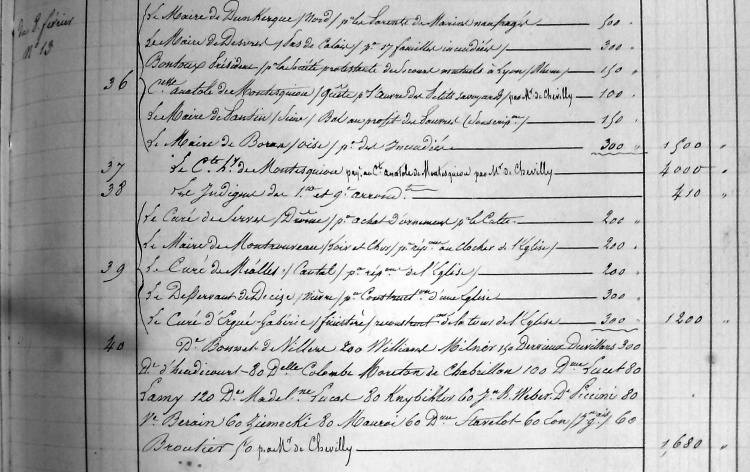 Du 8 février
N° 13
Le Maire de Dunkerque / Nord / pr les Parents de Marins naufragés 500 "
Le Maire de Desvres / Pas de Calais / pr 17 familles incendiées / 300 "
Bontoux Président / pr la Société protestante de Secours mutuels à Lyon / Rhône / 150 "
36 Csse anatole de Montesquiou / Quête pr l'œuvre des Petits Savoyards / par Mr de Chevilly 100 "
Le Maire de Pantin / Seine / Bal au profit des Pauvres (Souscripon) 150 "
Le Maire de Boran / Oise / pr des Incendiés 300 " 1,500 "
37 Le Cte hy de Montesquiou payé au Cte anatole de Montesquiou par Mr de Chevilly 4000 "
38 Indigens des 1er et 9e arrondts 410 "
Le Curé de Serves / Drôme / pr achat d'ornemens pr le Culte 200 "
Le Maire de Montrouveau / Loir et Cher / pr réparons au Clocher de l'Eglise / 200 "
39 Le Curé de Méalles / Cantal / pr répons de l'Eglise / 200 "
Le Desservant de Decize / Nièvre / pr Construction d'une Eglise 300 "
Le Curé d'Ergué-Gabéric / finistère / reconstruction de la tour de l'Eglise 300 " 1200 "
40 De Bonnet de Villers 200 William Milnor 150 Dervieux Duvillars 300
De d'headicourt 80 Delle Colombe Moreton de Chabrillon 100 Dme Lucet 80
Lamy 120 De Madelne Lucas 80 Knybihler 60 Jn B. Weber. De Piccini 80
Ve Berain 60 Ziemecki 80 Mauroi 60 Dme Stavelot 60 Con / 60
Broutier 50 par Mr de Chevilly 1,680 "